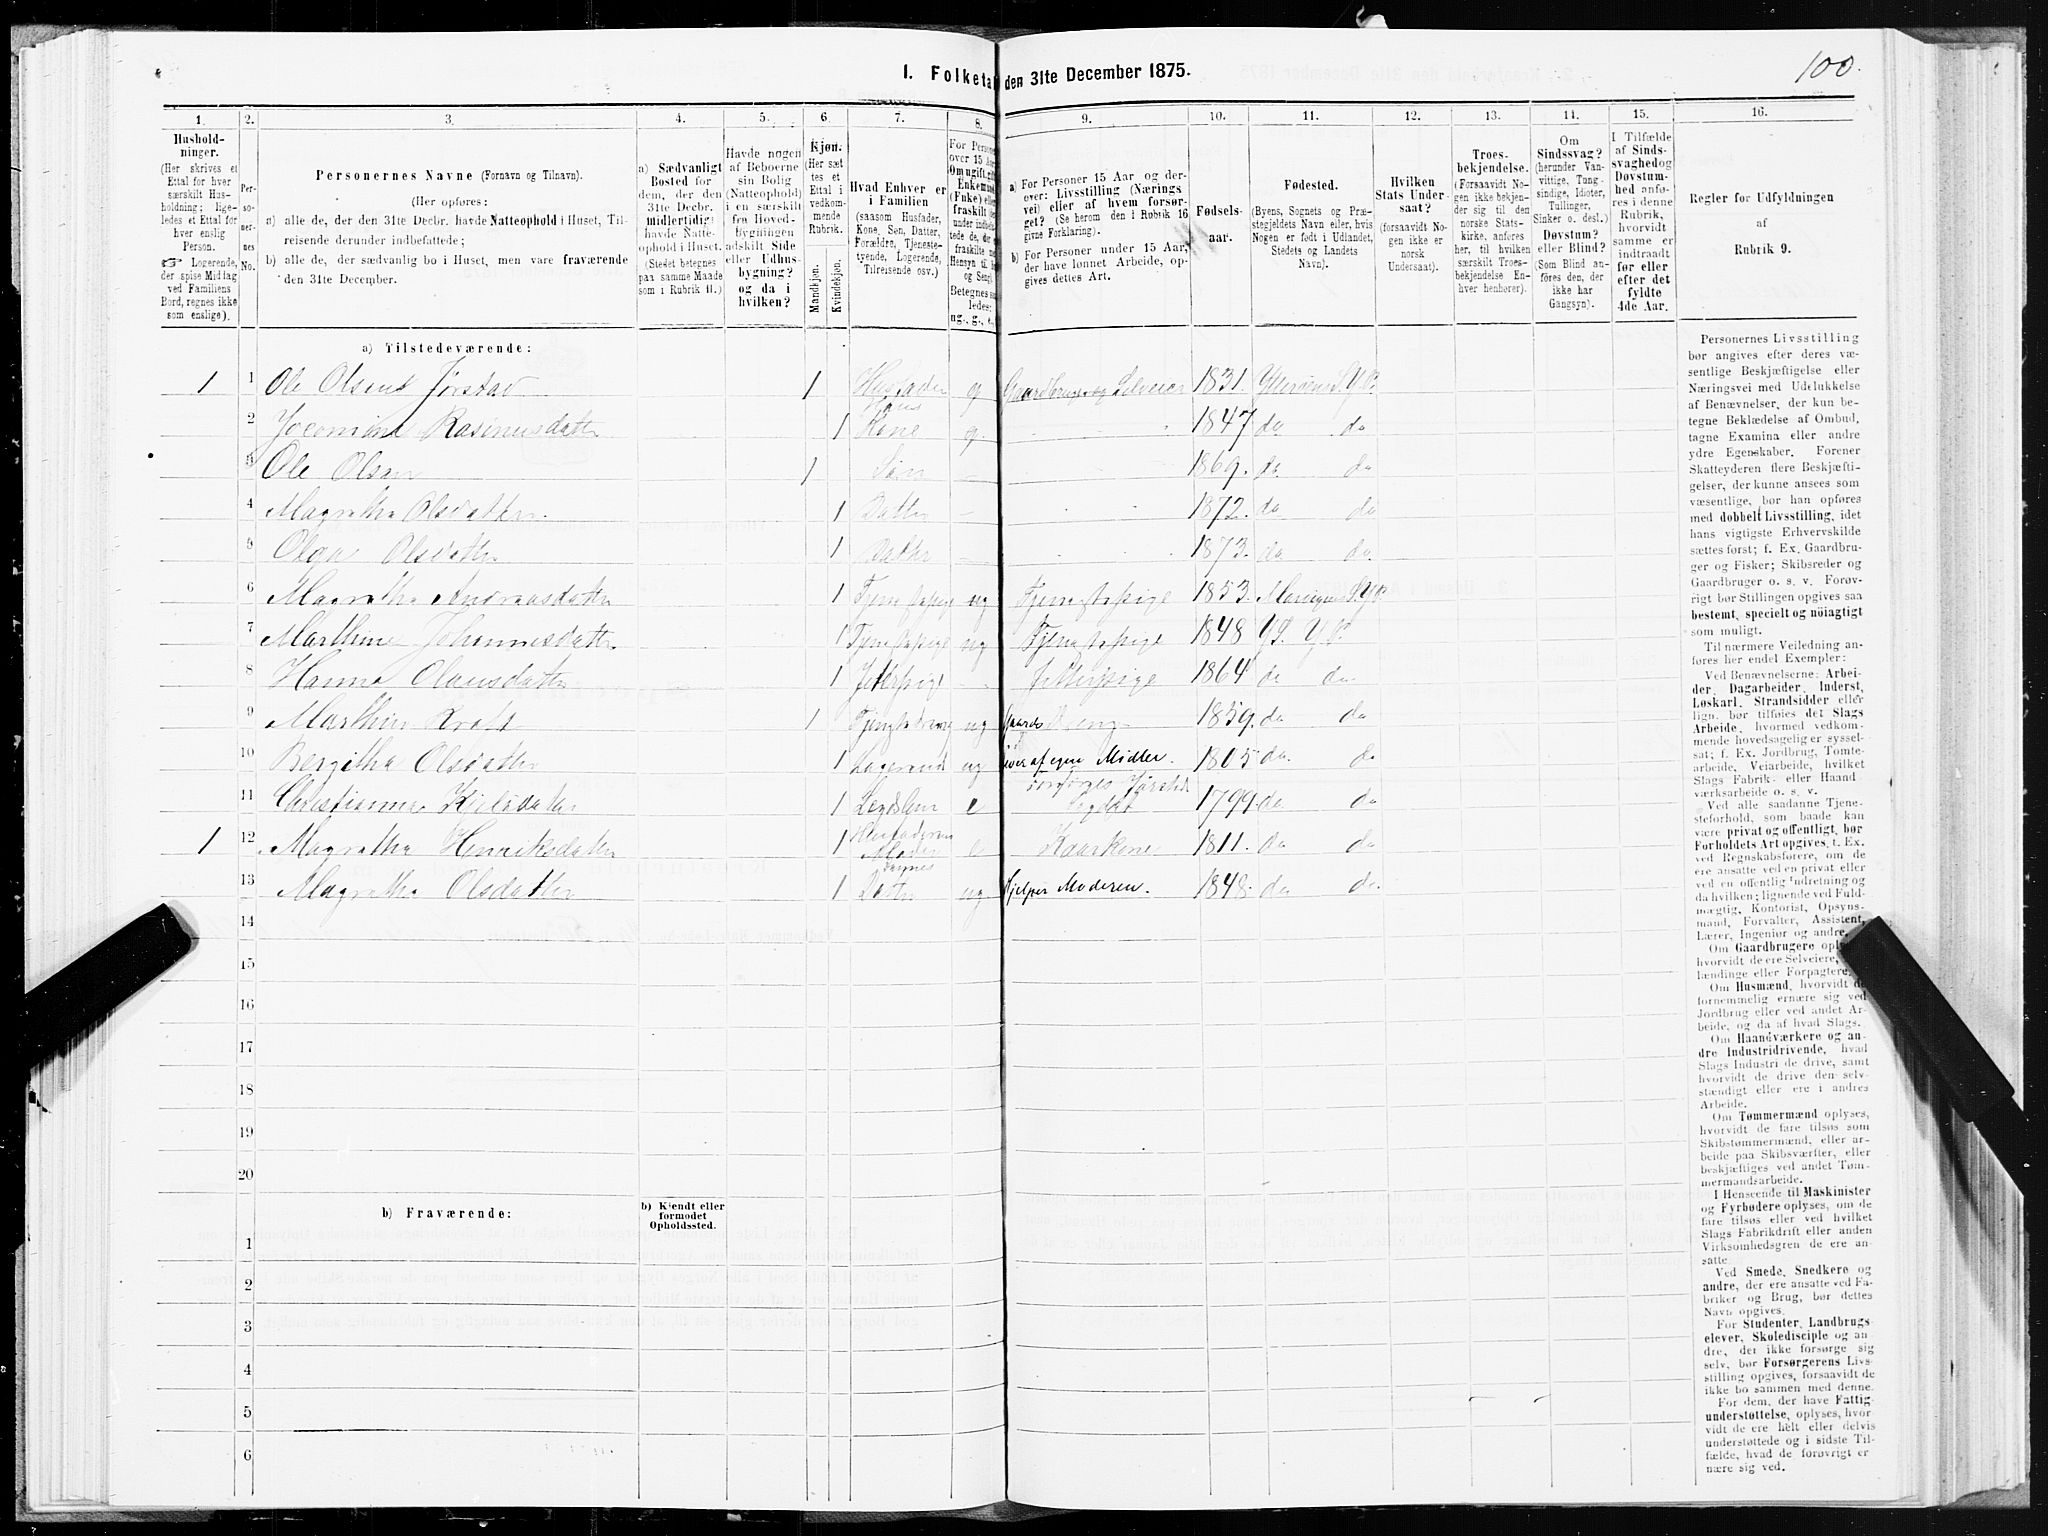 100.
I. Folketal den 31te December 1875.
1. 2. 3. 4. 5. 6. 7. 8. 9. 10. 11. 12. 13. 14. 15. 16.
Hushold-
ninger.
(Her skrives et
Ettal for hver
særskilt Hus-
holdning; lige-
ledes et Ettal for
hver enslig
Person.
☞ Logerende,
der spise Middag
ved Familiens
Bord, regnes ikke
som enslige).
Per-
so-
ner-
nes
No.
Personernes Navne (Fornavn og Tilnavn).
(Her opføres:
a) alle de, der den 31te Decbr. havde Natteophold i Huset, Til-
reisende derunder indbefattede;
b) alle de, der sædvanlig bo i Huset, men vare fraværende
den 31te December.
a) Sædvanligt
Bosted for
dem, der den
31te Decbr.
midlertidig
havde Natte-
ophold i Huset.
(Stedet betegnes
paa samme Maade
som i Rubrik 11.)
Havde nogen
af Beboerne
sin Bolig
(Natteophold)
i en særskilt
fra Hoved-
bygningen
adskilt Side
eller Udhus-
bygning?
og da i
hvilken?
Kjøn.
(Her sæt
tes et
Ettal i
vedkom-
mende
Rubrik.
Mandkjøn.
Kvindekjøn.
Hvad Enhver er
i Familien
(saasom Husfader,
Kone, Søn, Datter,
Forældre, Tjeneste-
tyende, Logerende,
Tilreisende osv.)
a) For Personer 15 Aar og der-
over: Livsstilling (Nærings
vei) eller af hvem forsør-
get? (Se herom den i Rubrik 16
givne Forklaring).
b) For Personer under 15 Aar,
der have lønnet Arbeide, op-
gives dettes Art.
Fødsels-
aar.
Fødested.
(Byens, Sognets og Præ-
stegjeldets Navn eller, hvis
Nogen er født i Udlandet,
Stedets og Landets
Navn).
Hvilken
Stats Under-
saat?
(forsaavidt No-
gen ikke er
norsk
Undersaat).
Troes-
bekjendelse.
(Forsaavidt No-
gen ikke bekjen-
der sig til den
norske Stats-
kirke, anføres
her, til hvilken
særskilt Troes-
bekjendelse En-
hver henhører).
Om
Sindssvag?
(herunder Van-
vittige, Tung-
sindige, Idioter,
Tullinger,
Sinker o. desl.)
Døvstum?
eller Blind?
(Som Blind an-
føres den, der
ikke har
Gangsyn).
I Tilfælde
af Sinds-
svaghed og
Døvstum-
hed anfø-
res i denne
Rubrik,
hvorvidt
samme er
indtraadt
før eller
efter det
fyldte
4de Aar.
Regler for Udfyldningen
af
Rubrik 9.
a) Tilstedeværende:
1 1 Ole Olsen Jørstad 1 Husfader g Gaardbruger og Selveier 1831. Yterøens S. Y. P.
2 Rasmusdatter 1 Hans Kone g. 1847 do do
3 Ole Olsen 1 Søn 1869. do. do
4 Magretha Olsdatter 1 Datter 1872. do do
5 Olga Olsdatter 1 Datter 1873. do do
6 Magretha Andreasdatter 1 Tjenestepige ug Tjenestepige 1853.
7 Marthine Johannesdatter 1 Tjenestepige ug Tjenestepige 1848 Y. S. Y. P.
8 Hanna Olausdatter 1 Jeterpige Jeterpige 1864 do do
9 Marthin 1 ug Gaards 1859. do do
10 Bergitha Olsdatter 1 Logerende ug lever af egne Midler. 1805 do. do
11 Christianna 1 Lægdslem e 1799. do do
1 12 Magretha Henriksdatter 1 Husfaderens Moder e Kaarkone 1811. do do
13 Magretha Olsdatter 1 Datter ug hjelper Moderen. 1848. do do.
14
15
16
17
18
19
20
b) Fraværende:
b) Kjendt eller
formodet
Opholdssted.
1
2
3
4
5
6
Personernes Livsstilling
bør angives efter deres væ-
sentlige Beskjæftigelse eller
Næringsvei med Udelukkelse
af Benævnelser, der kun be-
tegne Beklædelse af Ombud,
tagne Examina eller andre
ydre Egenskaber. Forener
Skatteyderen flere Beskjæfti-
gelser, der kunne ansees som
væsentlige, bør han opføres
med dobbelt Livsstilling, idet
hans vigtigste Erhvervskilde
sættes først; f. Ex. Gaardbru-
ger og Fisker; Skibsreder og
Gaardbruger o. s. v. Forøv-
rigt bør Stillingen opgives saa
bestemt, specielt og nöiagtigt
som muligt.
Til nærmere Veiledning an-
føres her endel Exempler:
Ved Benævnelserne: Arbei-
der, Dagarbeider, Inderst,
Løskarl, Strandsidder eller
lign. bør tilføies det Slags
Arbeide, hvormed vedkom-
mende hovedsagelig er syssel-
sat; f. Ex. Jordbrug, Tomte-
arbeide, Veiarbeide, hvilket
Slags Fabrik- eller Haand
værksarbeide o. s. v.
Ved alle saadanne Tjene-
steforhold, som baade kan
være privat og offentligt, bør
Forholdets Art opgives, t. Ex.
ved Regnskabsførere, om de
ere ansatte ved en privat eller
ved en offentlig Indretning og
da hvilken; lignende ved Fuld-
mægtig, Kontorist, Opsyns-
mand, Forvalter, Assistent,
Lærer, Ingeniør og andre.
Om Gaardbrugere oplyses,
hvorvidt de ere Selveiere,
lændinge eller Forpagtere.
Om Husmænd, hvorvidt de
fornemmelig ernære sig ved
Jordbrug eller ved andet Ar-
beide, og da af hvad Slags.
Om Haandværkere og an-
dre Industridrivende, hvad
Slags Industri de drive, samt
hvorvidt de drive den selv-
stændigt eller ere i andres
Arbeide.
Om Tømmermænd oplyses,
hvorvidt de fare tilsøs som
Skibstømmermænd, eller ar-
beide paa Skibsværfter, eller
beskjæftiges ved andet Tøm-
mermandsarbeide.
I Henseende til Maskinister
og Fyrbødere oplyses, om de
fare tilsøs eller ved hvilket
Slags Fabrikdrift eller anden
Virksomhedsgren de ere an-
satte.
Ved Smede, Snedkere og
andre, der ere ansatte ved Fa-
briker og Brug, bør dettes
Navn opgives.
For Studenter, Landbrugs-
elever, Skoledisciple og an-
dre, der ikke forsørge sig
selv, bør Forsørgerens Livs-
stilling opgives, forsaavidt de
ikke bo sammen med denne.
For dem, der have Fattig-
understøttelse, oplyses, hvor-
vidt de ere helt eller delvis
understøttede og i sidste Til-
fælde, hvad de forøvrigt er
nære sig ved.